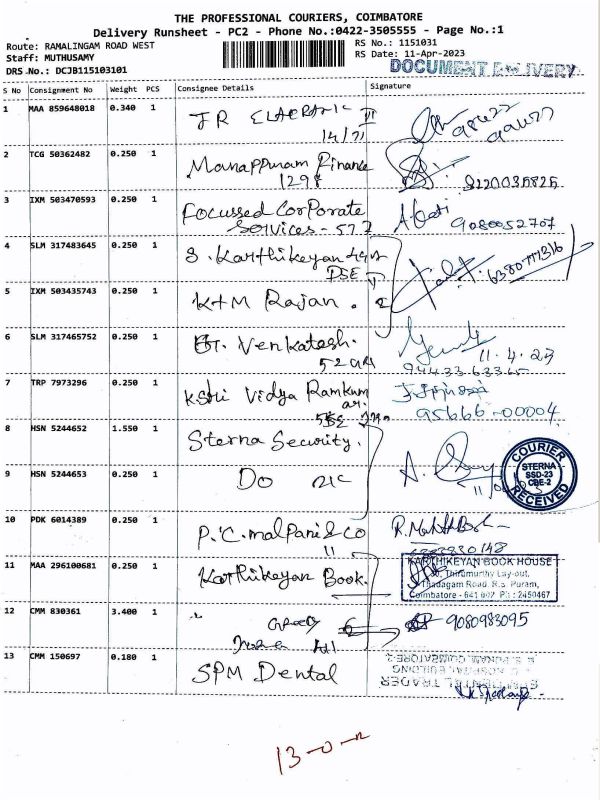 THE PROFESSIONAL COURIERS, COIMBATORE
Delivery Runsheet - PC2 - Phone No.:0422-3505555 - Page No.:1
Route: RAMALINGAM ROAD WEST
Staff: MUTHUSAMY
DRS No.: DCJB115103101
RS No.: 1151031
RS Date: 11-Apr-2023
DOCUMENT DELIVERY
S No Consignment No Weight PCS Consignee Details Signature
1 MAA 859648018 0.340 1 JR
14/71
2 TCG 50362482 0.250 1 Manappuram Finance
1298 8220035825
3 IXM 503470593 0.250 1 Focussed Corporate
Services - 577 9080052707
4 SLM 317483645 0.250 1 S. Karthikeyan
5 IXM 503435743 0.250 1 K+M Rajan.
6 SLM 317465752 0.250 1 Venkatesh.
11.4.23
94433.63365
7 TRP 7973296 0.250 1 K. Sri Vidya Ramkum
ar.
95666-00004
8 HSN 5244652 1.550 1 Sterna Security.
COURIER
STERNA
SSD-23
CBE-2
RECEIVED
9 HSN 5244653 0.250 1 Do
10 PDK 6014389 0.250 1 P.C. Malpani & Co
11
11 MAA 296100681 0.250 1 Karthikeyan Book.
KARTHIKEYAN BOOK HOUSE
Thirumurthy Lay-out,
Thadagam Road, R.S. Puram,
Coimbatore - 641 002. Ph : 2450467
12 CMM 830361 3.400 1 9080983095
13 CMM 150697 0.180 1 SPM Dental
DENTAL TRADER
HOSPITAL BUILDING
R. S. PURAM, COIMBATORE-2